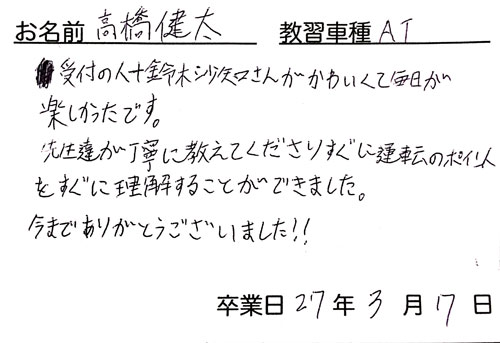 お名前 高橋健太 教習車種 AT
受付の人 鈴木沙矢口さんがかわいくて毎日が
楽しかったです。
先生達が丁寧に教えてくださりすぐに運転のポイント
をすぐに理解することができました。
今までありがとうございました!!
卒業日 27年 3月 17日